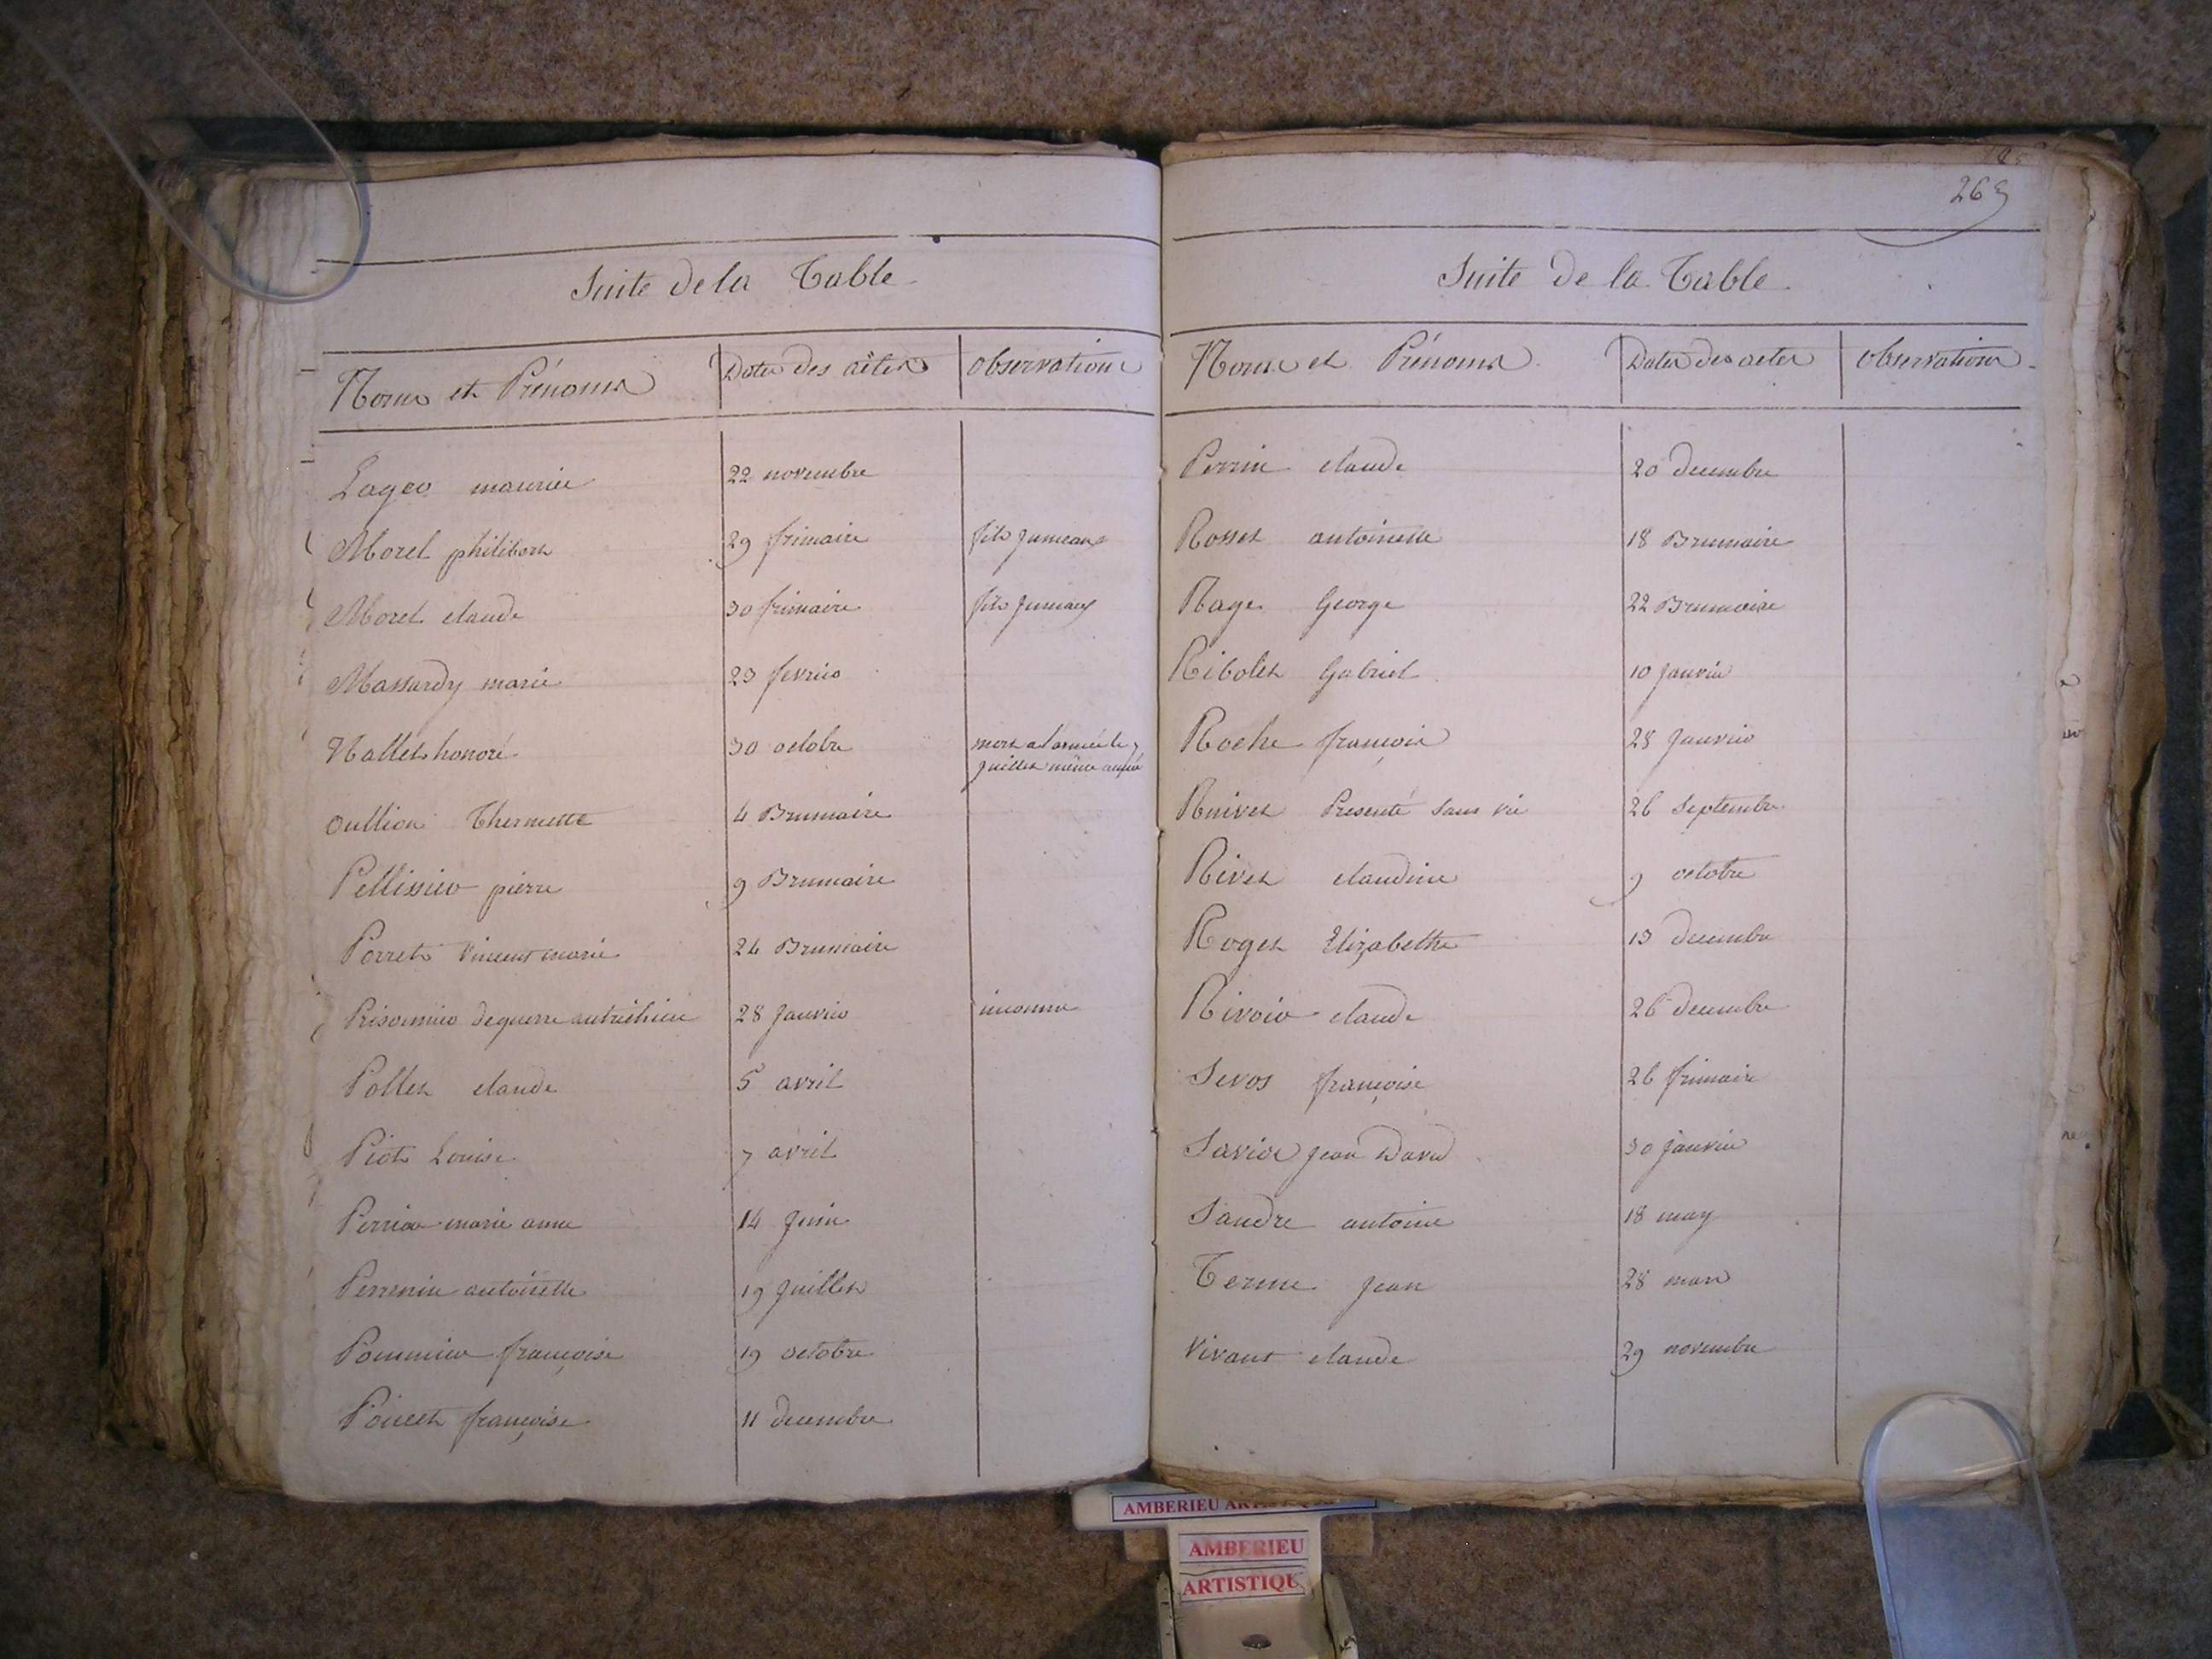 Suite de la Table
Noms et Prénoms
Dates des actes
observations
Lager maurice
22 novembre
Morel philibert
29 frimaire
fils jumeaux
Morel claude
30 frimaire
fils jumeaux
Massardy marie
23 fevrier
Nallet honoré
30 octobre
mort a l'armée le 7
juillet même année
oullion Thermette
4 Brumaire
Pellissier pierre
9 Brumaire
Perret vincent marie
24 Brumaire
Prisonnier de guerre autrichien
28 janvier
inconnu
Pollet claude
5 avril
Piot Louise
7 avril
Perrier marie anne
14 juin
Perrenin antoinette
19 juillet
Pommier françoise
19 octobre
Poncet françoise
11 decembre
269
Suite de la Table
Noms et Prénoms
Dates des actes
observations
Perrin claude
20 decembre
Rosset antoinette
18 Brumaire
Rage George
22 Brumaire
Ribolet Gabriel
10 janvier
Roche françois
28 janvier
Ruivet Presenté sans vie
26 septembre
Rivet claudine
9 octobre
Roget Elizabethe
13 decembre
Rivoir claude
26 decembre
Sevos françoise
26 frimaire
Savier jean David
30 janvier
Sandre antoine
18 may
Terme jean
28 mars
Vivant claude
29 novembre
AMBERIEU ARTISTIQUE
AMBERIEU
ARTISTIQUE